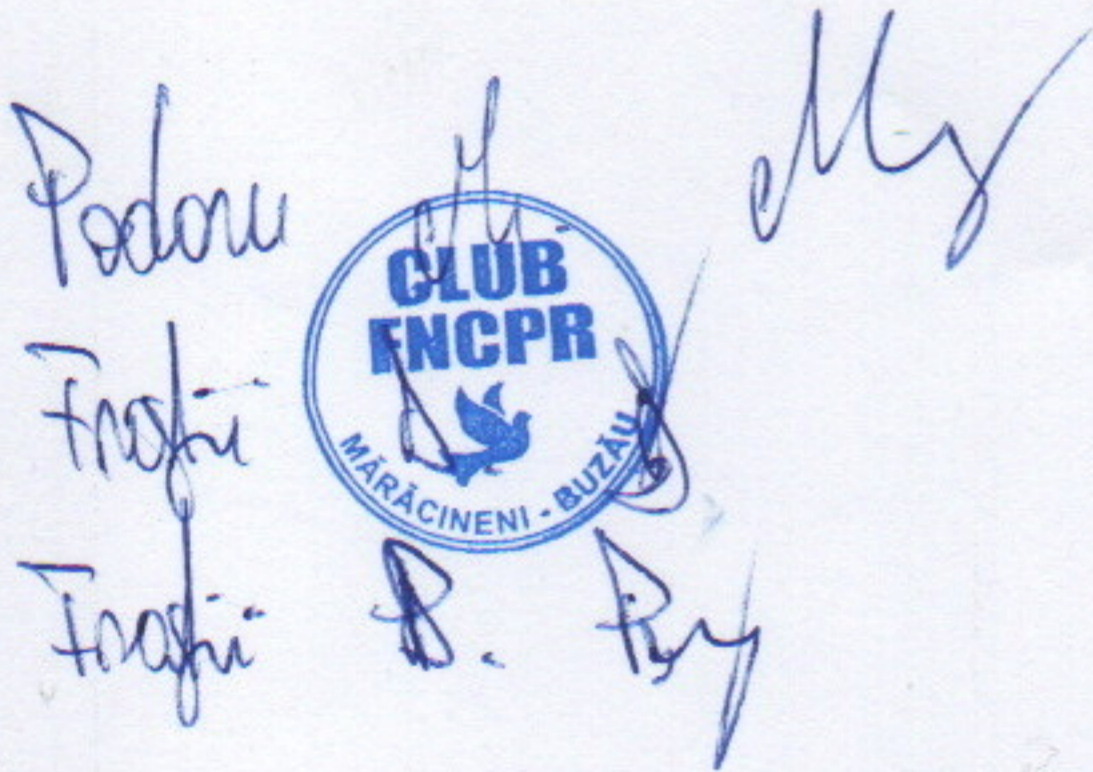 Podoru M.
CLUB
FNCPR
MĂRĂCINENI - BUZĂU
Frafii D
Frafii B.